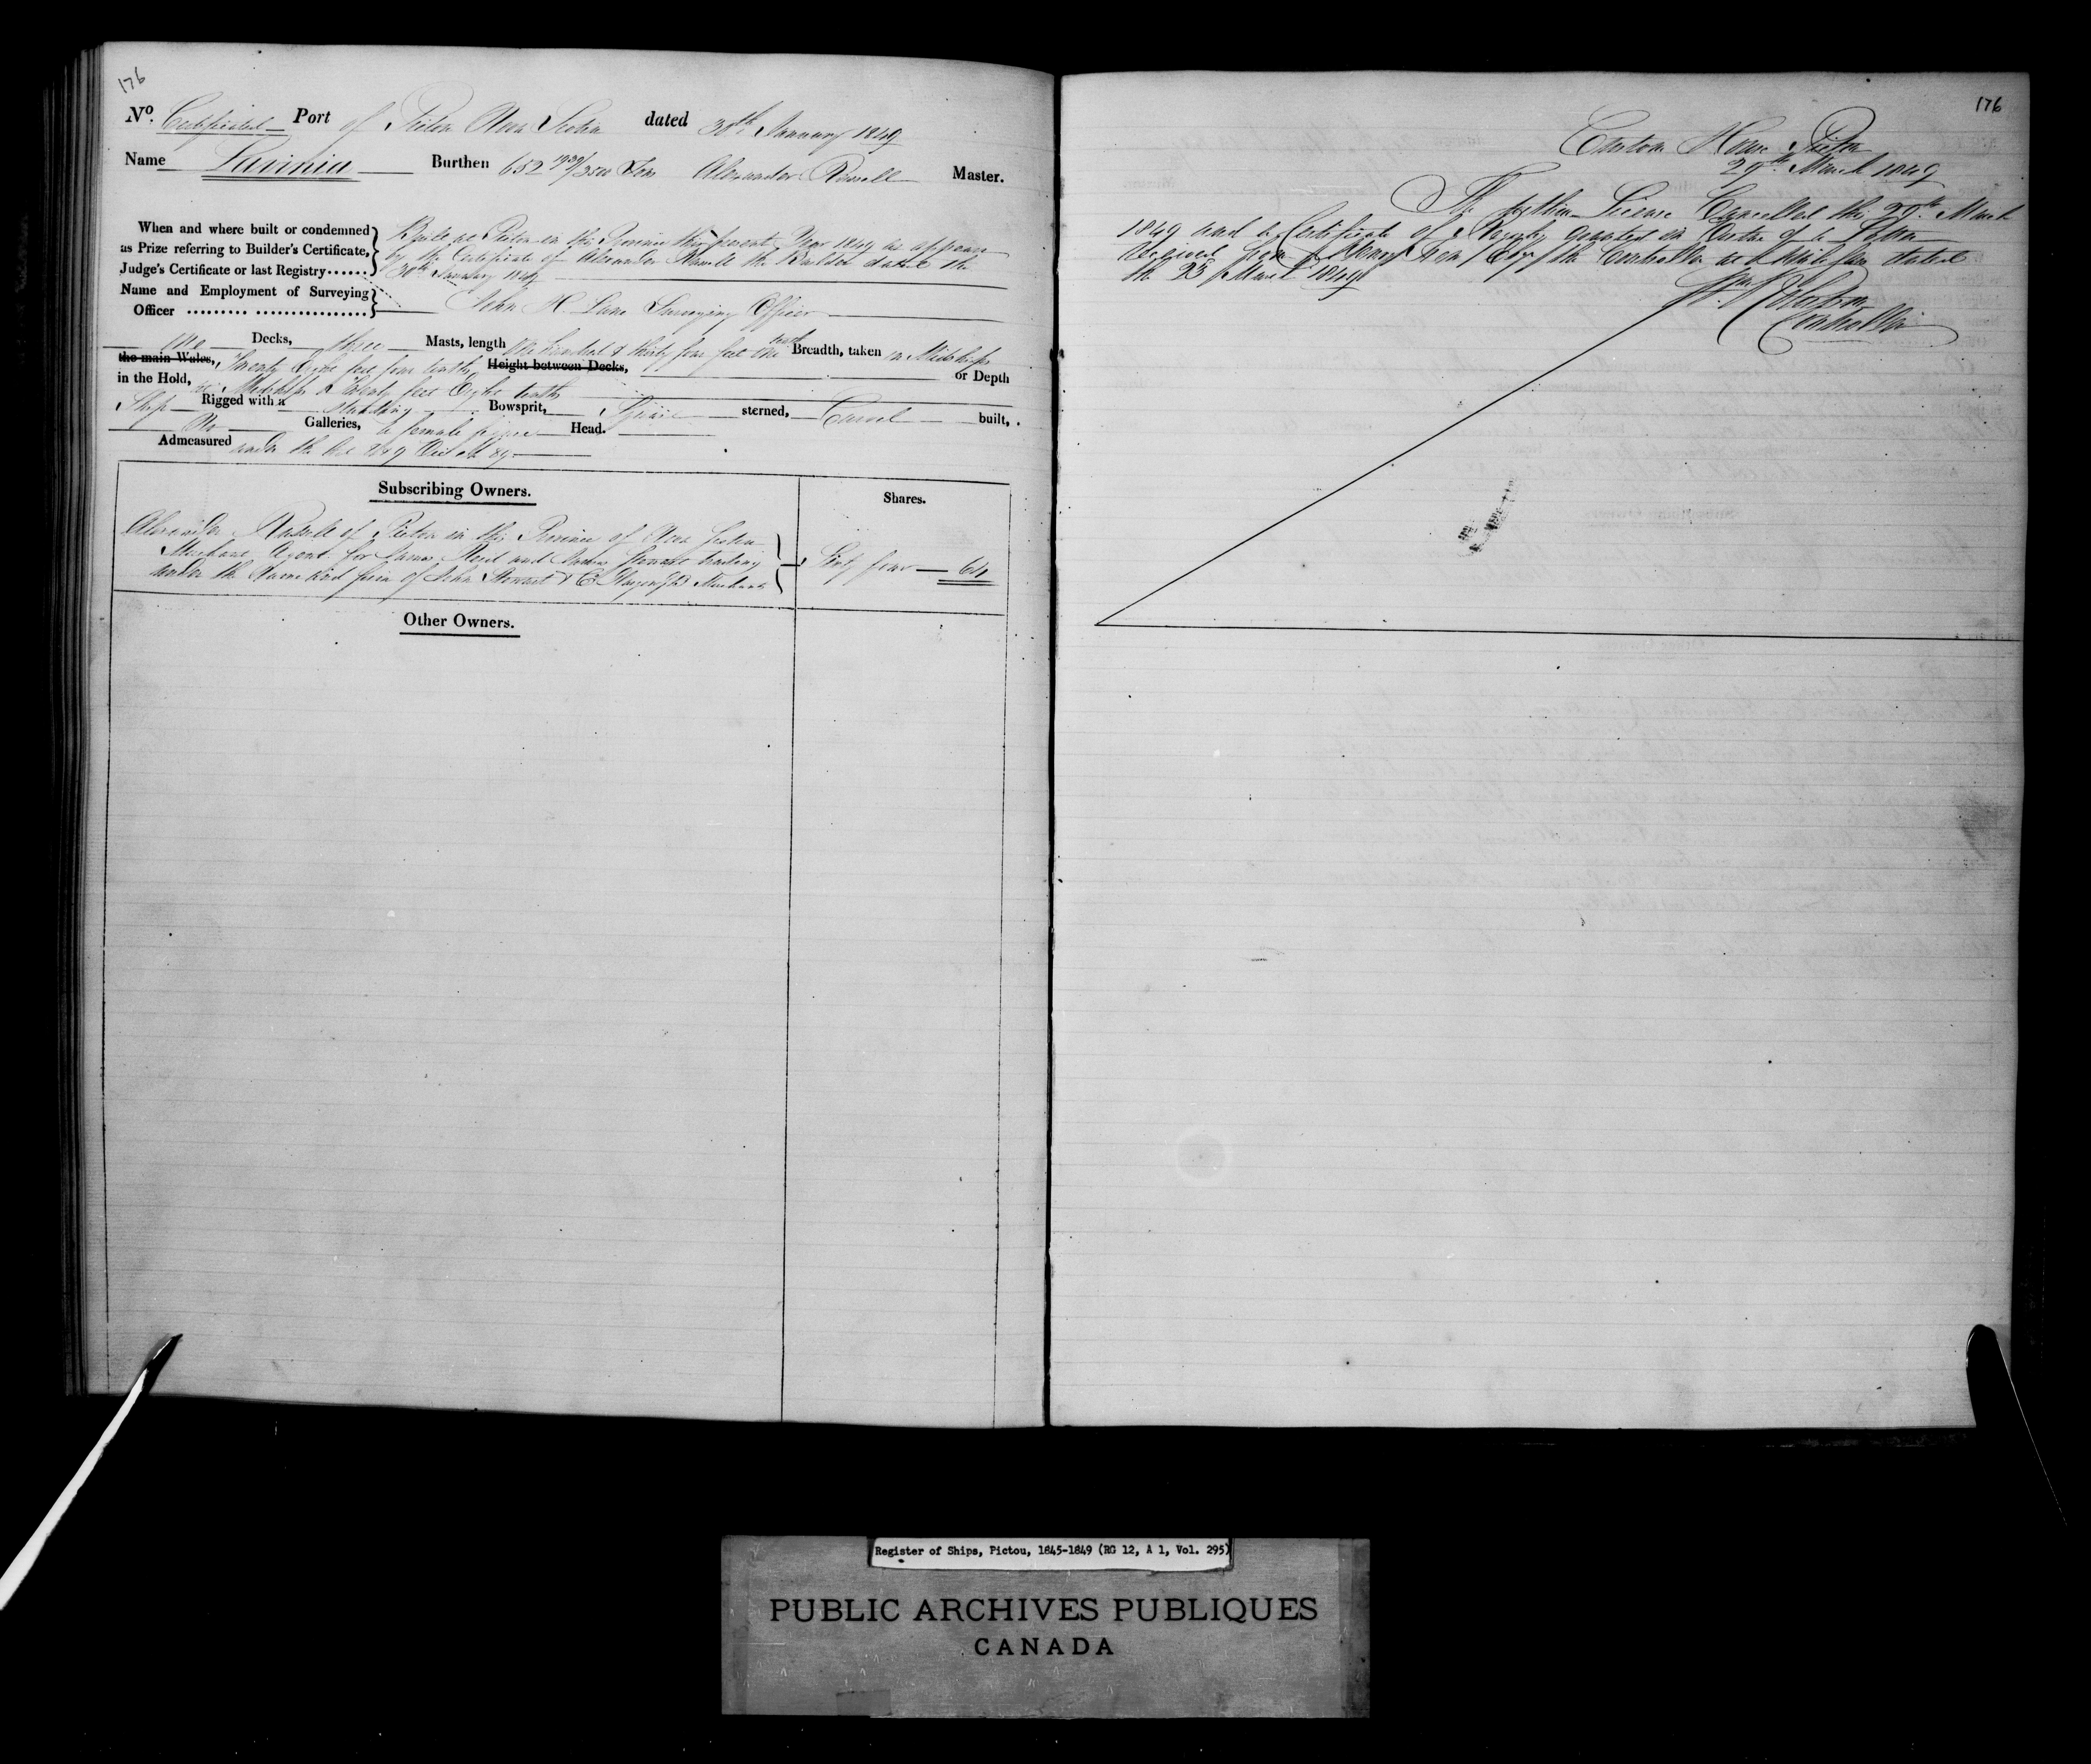 176
No. Certificated Port of Pictou Nova Scotia dated 30th January 1849
Name Lavinia Burthen 652 1939/3500 Tons Alexander Russell Master.
When and where built or condemned as Prize referring to Builder's Certificate, Judge's Certificate or last Registry......
Built at Pictou in this Province this present Year 1849 as appears
by the Certificate of Alexander Russell the Builder dated the
30th January 1849
Name and Employment of Surveying Officer ......... ................
John H. Lane Surveying Officer
Two Decks, three Masts, length one hundred & thirty four feet one tenth Breadth, taken in Midships
the main Wales, Twenty Eight feet four tenths, Height between Decks, or Depth
in the Hold, in Midships is Twenty feet Eight tenths
Ship Rigged with a standing Bowsprit, Square sterned, Carvel built,
No Galleries, a female figure Head.
Admeasured under the Act 8 & 9 Vict. ch 89
Subscribing Owners. Shares.
Alexander Russell of Pictou in this Province of Nova Scotia
Merchant Agent for James Reid and Stewart trading Sixty four 64
under the Name and firm of John Stewart & Co. Merchants
Other Owners.
176
Custom House Pictou
29th March 1849
The within License Cancelled this 29th March
1849 and a Certificate of Registry granted in
received from the Controller at Halifax dated
the 23 March 1849
Controller
Register of Ships, Pictou, 1845-1849 (RG 12, A 1, Vol. 295)
PUBLIC ARCHIVES PUBLIQUES
CANADA